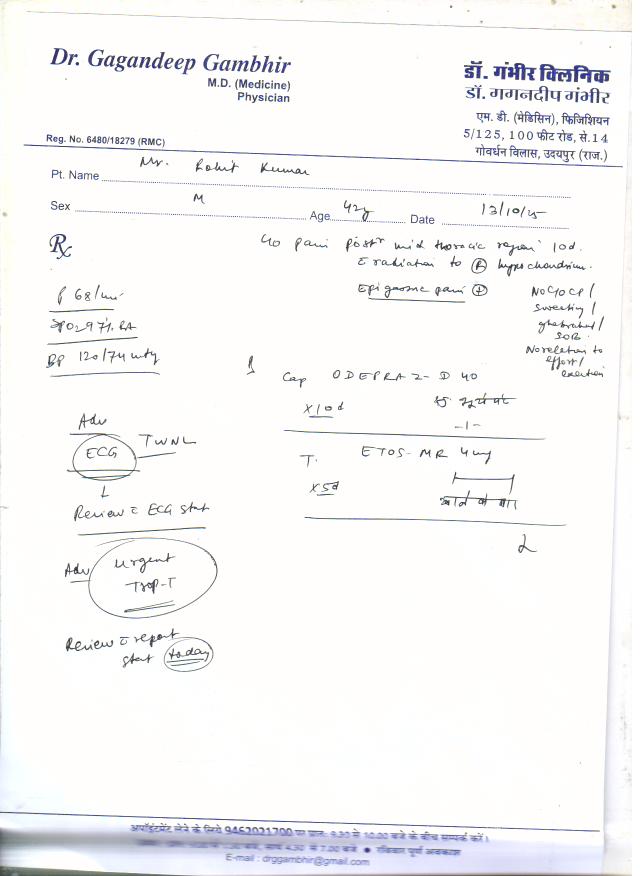 Dr. Gagandeep Gambhir
M.D. (Medicine)
Physician
डॉ. गंभीर क्लिनिक
डॉ. गगनदीप गंभीर
एम. डी. (मेडिसिन), फिजिशियन
5/125, 100 फीट रोड, से.14
गोवर्धन विलास, उदयपुर (राज.)
Reg. No. 6480/18279 (RMC)
Pt. Name Mr. Rohit Kumar
Sex M Age 42y Date 13/10/25
Rx
c/o pain postr mid thoracic region 10d.
c radiation to R hypochondrium.
Epigastric pain +
No C/O CP/
sweating/
ghabrahat/
SOB
No relation to
effort/
exertion
P 68/min
SPO2 97% RA
BP 120/74 mmHg
Adv
ECG TWNL
↓
Review c ECG stat
Adv Urgent
Trop-T
Review c report
stat today
Cap ODEPRAZ-D 40
X10d
-1-
T. ETOS-MR 4mg
X5d
खाने के बाद
अपॉइंटमेंट लेने के लिये 9462021700 पर प्रातः 9.30 से 10.00 बजे के बीच सम्पर्क करें।
रविवार पूर्ण अवकाश
E-mail : drggambhir@gmail.com